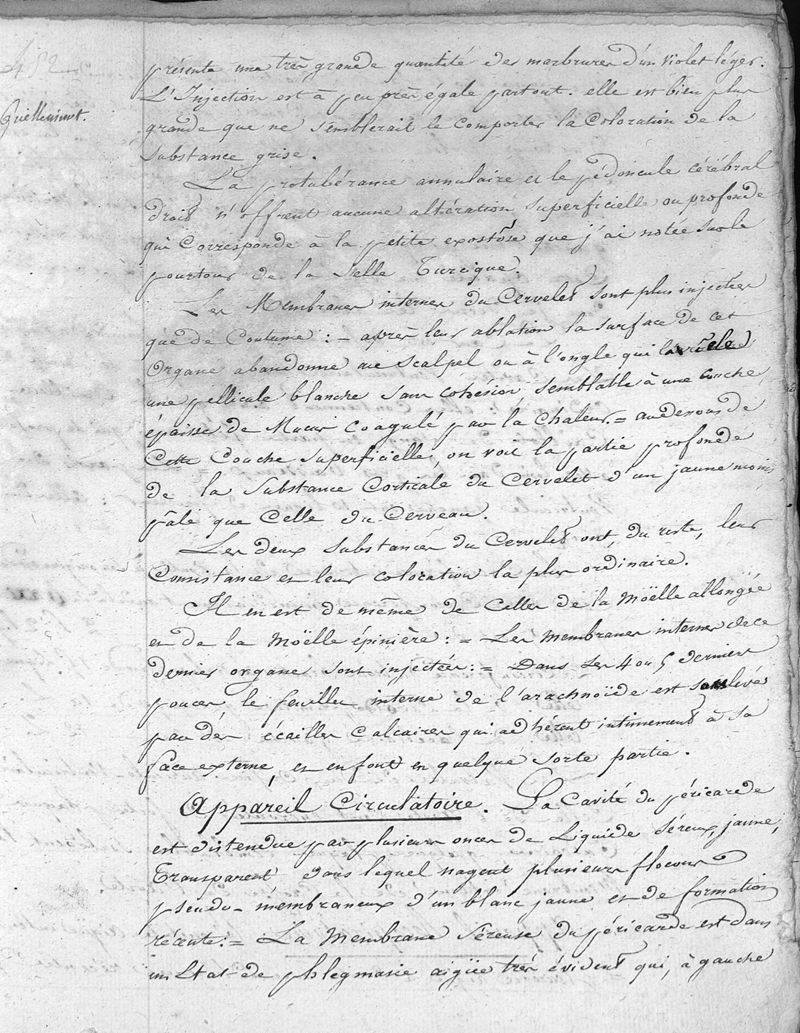 452
Quillaumot.
présente une très grande quantité des marbrures d'un violet léger.
L'Injection est à peu près égale partout. elle est bien plus
grande que ne semblerait le comporter la coloration de la
substance grise.
La protubérance annulaire et le pédoncule cérébral
droit n'offrent aucune altération superficielle ou profonde
qui corresponde à la petite exostose que j'ai notée sur le
pourtour de la Selle Turcique.
Les Membranes internes du Cervelet sont plus injectées
que de Coutume : = après leur ablation la surface de cet
Organe abandonne au scalpel ou à l'ongle qui la racle
une pellicule blanche sans cohésion, semblable à une couche
épaisse de Mucus Coagulé par la Chaleur. = au dessous de
Cette Couche Superficielle, on voit la partie profonde
de la Substance Corticale du Cervelet d'un jaune moins
pâle que Celle du Cerveau.
Les deux Substances du Cervelet ont, du reste, leur
Consistance et leur coloration la plus ordinaire.
Il en est de même de Celles de la Moëlle allongée
et de la Moëlle épinière : = Les membranes internes de ce
dernier organe sont injectées : = Dans les 4 ou 5 derniers
pouces le feuillet interne de l'arachnoïde est soulevé
par des écailles Calcaires qui adhérent intimement à sa
face externe, et en font en quelque sorte partie.
Appareil Circulatoire. La Cavité du péricarde
est distendue par plusieurs onces de Liquide Séreux, jaune,
Transparent dans lequel nagent plusieurs flocons
pseudo-membraneux d'un blanc jaune et de formation
récente. = La Membrane Séreuse du péricarde est dans
un Etat de phlegmasie aigüe très évident qui, à gauche